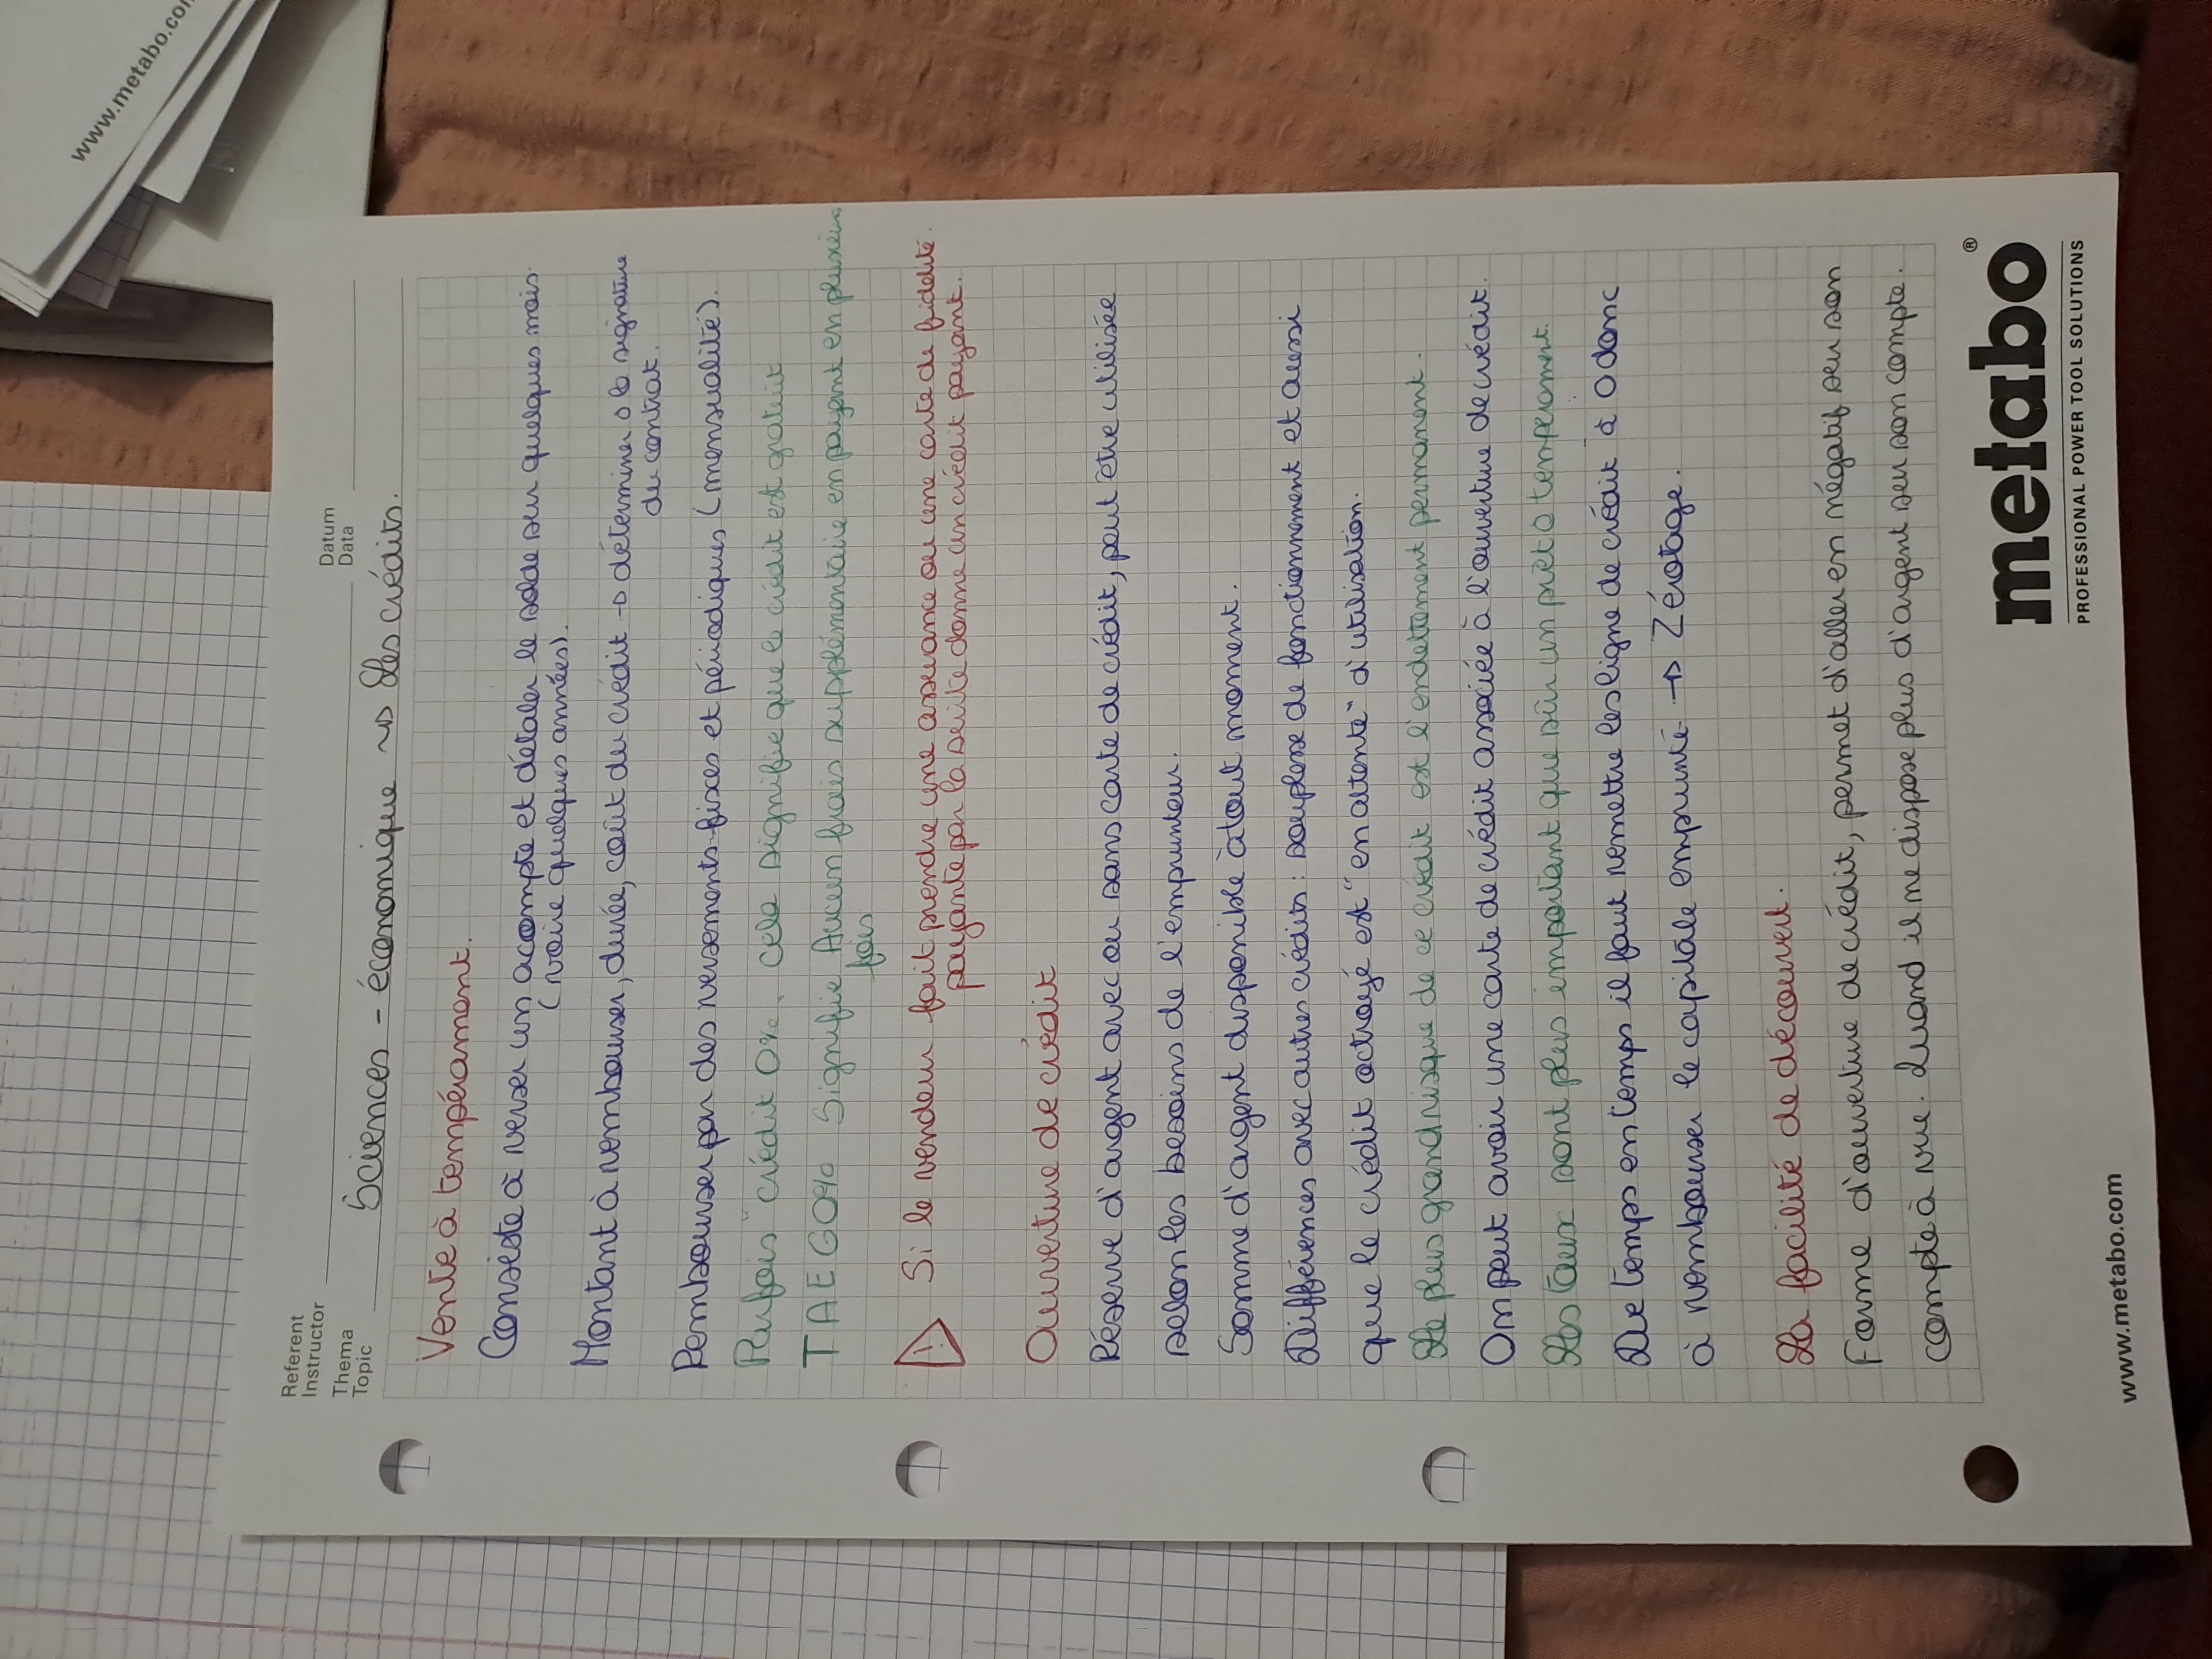 www.metabo.co
Referent
Instructor
Datum
Data
Thema
Topic
Sciences - économique ~> Les crédits.
Vente à tempérament.
Consiste à verser un acompte et d'étaler le solde sur quelques mois.
(voire quelques années).
Montant à rembourser, durée, coût du crédit -> déterminer à la signature
du contrat.
Rembourser par des versements fixes et périodiques (mensualité).
Parfois "crédit 0%, cela signifie que le crédit est gratuit
TAEG 0% Signifie Aucun frais supplémentaire en payent en plusieurs
fois
! Si le vendeur fait prendre une assurance ou une carte de fidélité.
payante par la suite donne un crédit payant.
Ouverture de crédit
Réserve d'argent avec ou sans carte de crédit, peut être utilisée
selon les besoins de l'emprunteur.
Somme d'argent disponible à tout moment.
Différences avec autres crédits : souplesse de fonctionnement et aussi
que le crédit octroyé est "en attente" d'utilisation.
Le plus grand risque de ce crédit est l'endettement permanent.
On peut avoir une carte de crédit associée à l'ouverture de crédit.
Les taux sont plus important que sûr un prêt à temperament.
De temps en temps il faut remettre les ligne de crédit à 0 donc
à rembourser le capitale emprunté -> Zérotage.
La facilité de découvert.
Forme d'ouverture de crédit, permet d'aller en négatif sur son
compte à vue. Quand il ne dispose plus d'argent sur son compte.
www.metabo.com
metabo®
PROFESSIONAL POWER TOOL SOLUTIONS